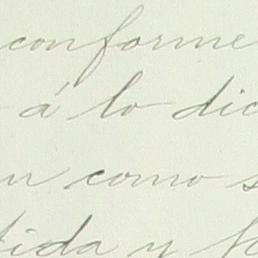 conforme
á lo dic
n como s
tida y fo